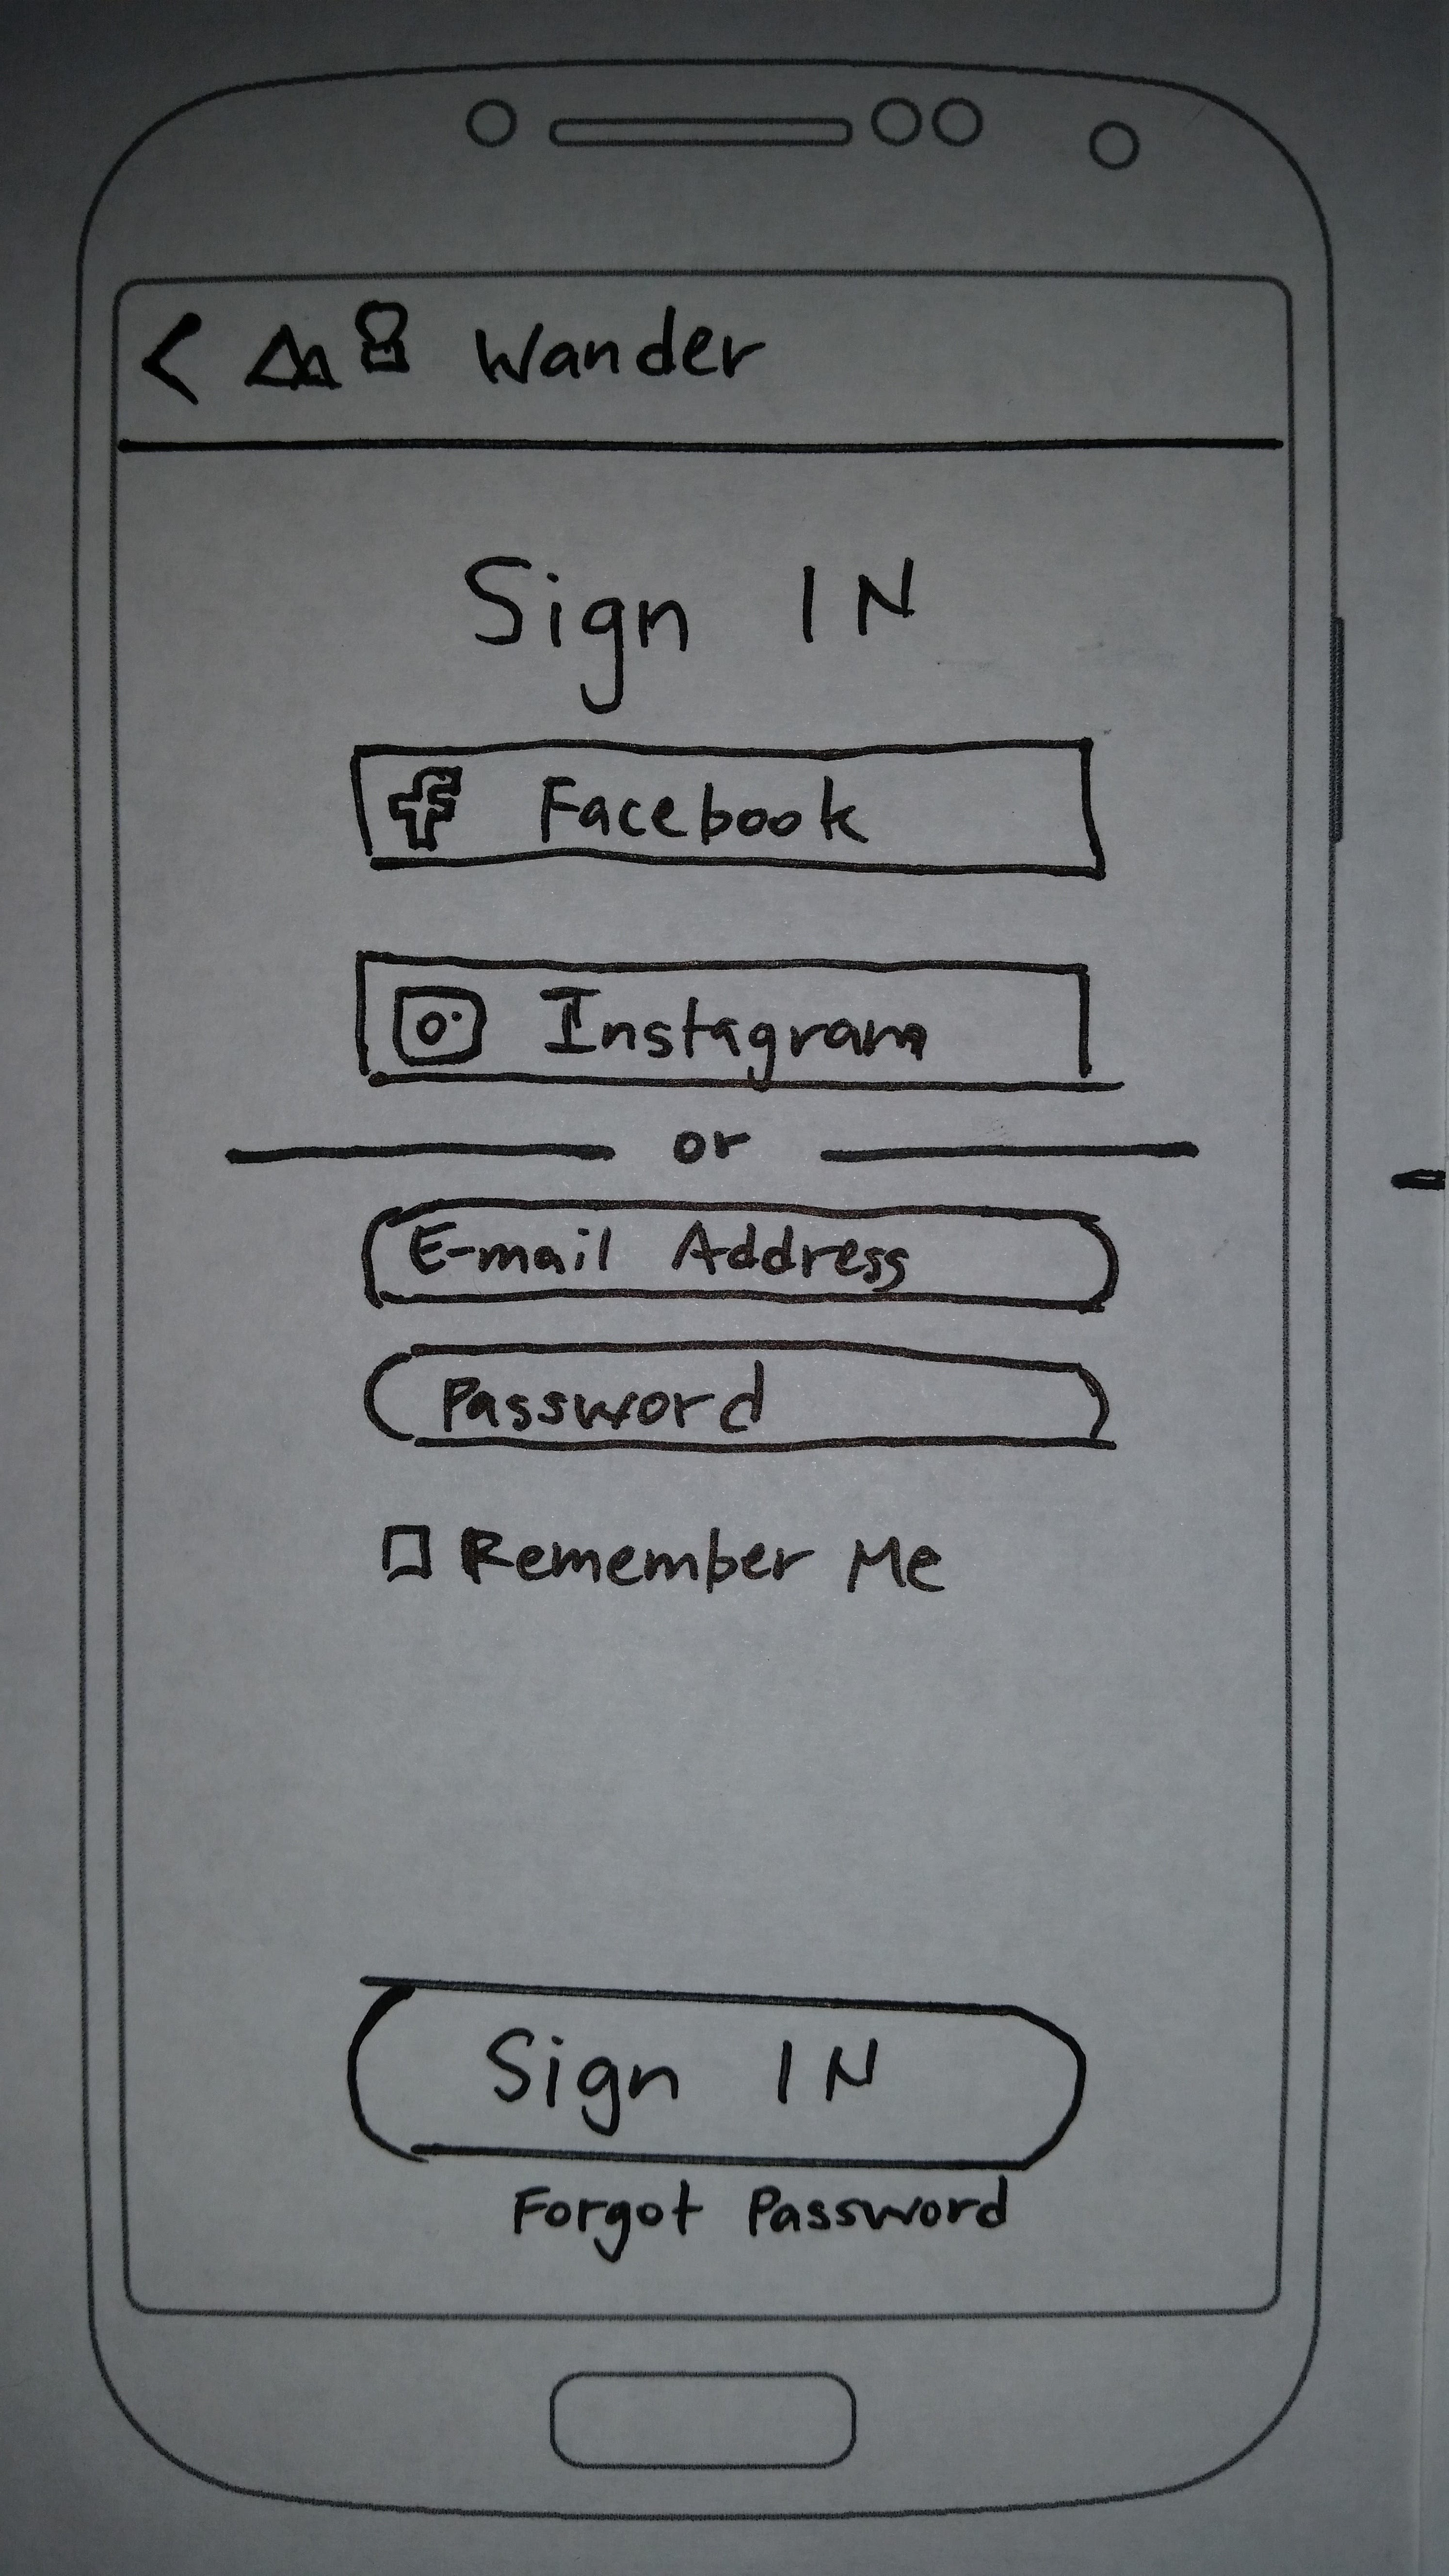 Wander
Sign IN
Facebook
Instagram
or
E-mail Address
Password
Remember Me
Sign IN
Forgot Password